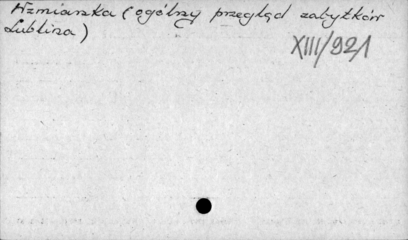 Wzmianka (ogólny przegląd zabytków
Lublina)
XIII/921